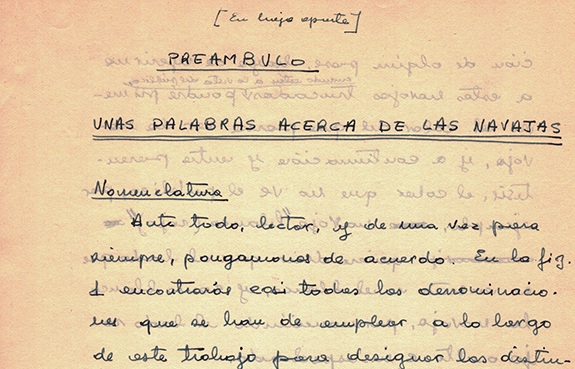 [En hoja aparte]
PREAMBULO
UNAS PALABRAS ACERCA DE LAS NAVAJAS
Nomenclatura
Ante todo, lector, y de una vez para
siempre, pongamonos de acuerdo. En la fig.
1 encontrarás casi todas las denominacio-
nes que se han de emplear, a lo largo
de este trabajo para designar las distin-